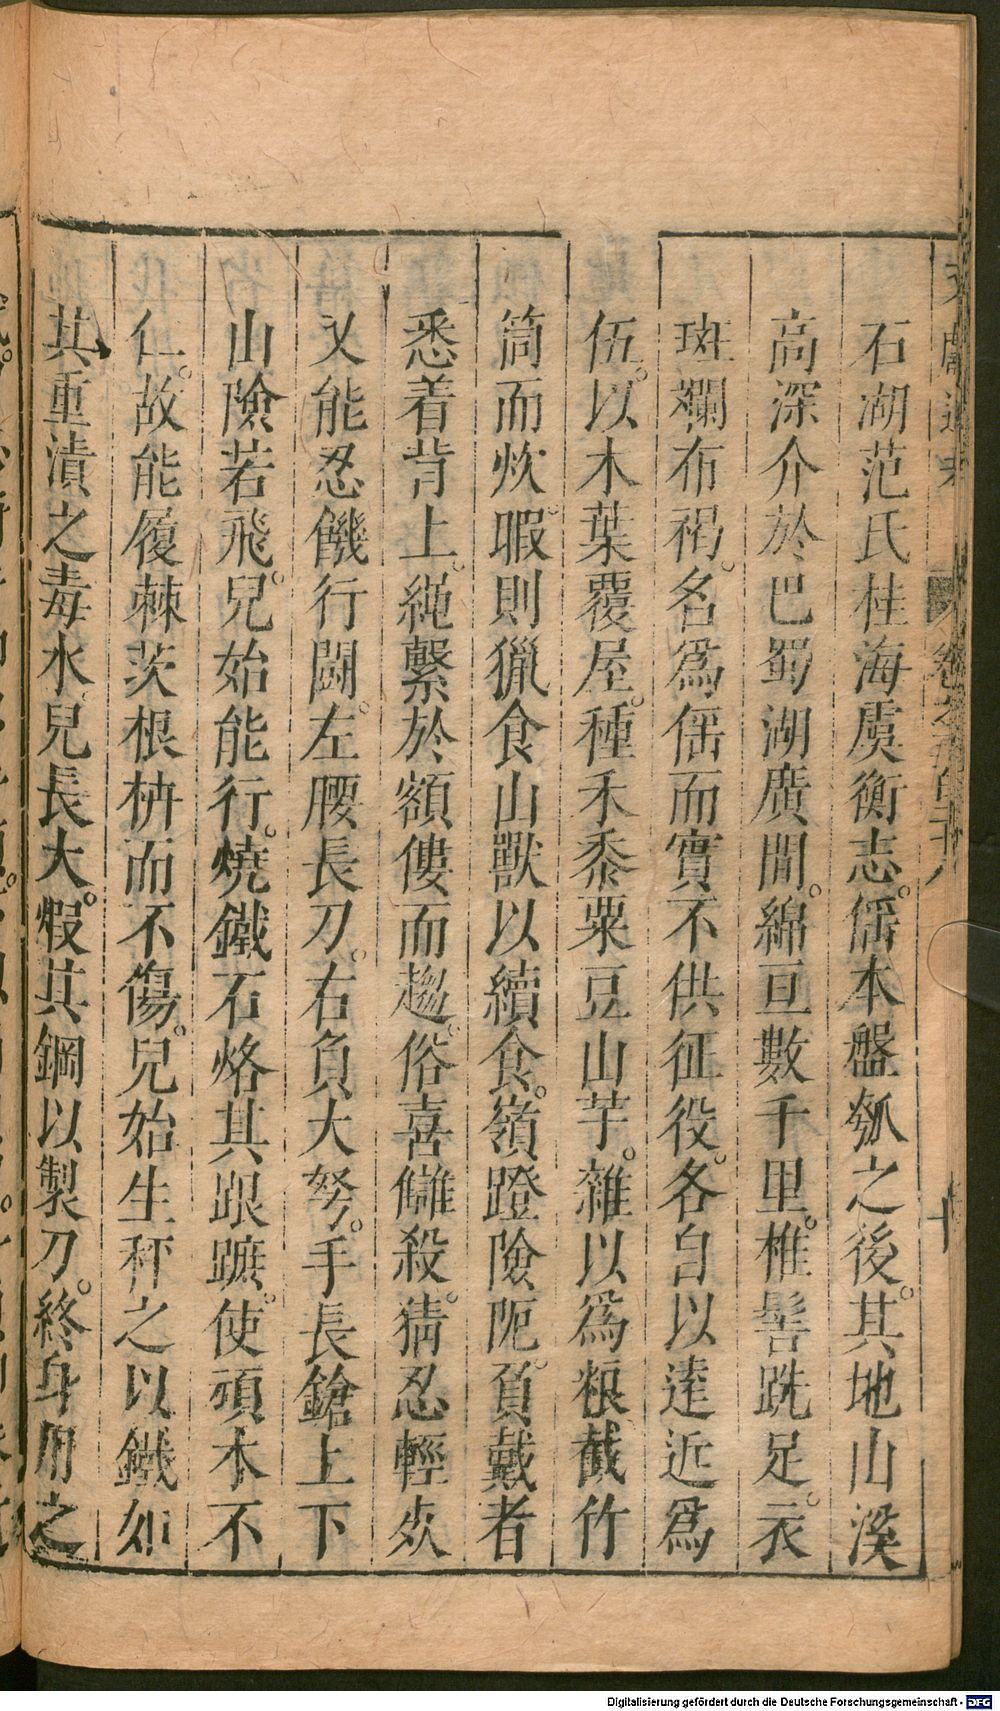 石湖范氏桂海虞衡志。傜本盤瓠之後。其地山溪
高深介於巴蜀湖廣間。綿亘數千里。椎髻跣足。衣
斑斕布褐。名爲傜而實不供征役。各自以逺近爲
伍。以木葉覆屋。種禾黍粟豆山芋。雜以爲粮截竹
筒而炊。暇則獵食山獸以續食。嶺蹬險阨。負戴者
悉着背上。繩繫於額僂而趨。俗喜讎殺。猜忍輕死
又能忍饑行鬭。左腰長刀。右負大努。手長鎗上下
山險若飛。兒始能行。燒鐵石烙其跟蹠。使頑木不
仁。故能履棘茨根枿而不傷。兒始生秤之以鐵如
其重漬之毒水。兒長大。煆其鋼以製刀。終身用之
Digitalisierung gefördert durch die Deutsche Forschungsgemeinschaft - DFG